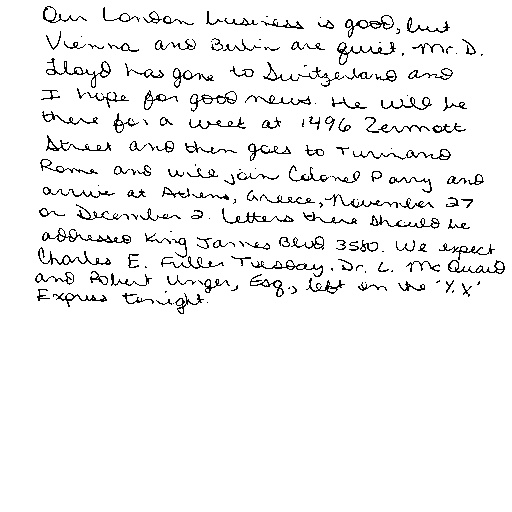 Our London business is good, but
Vienna and Berlin are quiet. Mr. D.
Lloyd has gone to Switzerland and
I hope for good news. He will be
there for a week at 1496 Zermott
Street and then goes to Turin and
Rome and will join Colonel Parry and
arrive at Athens, Greece, November 27
or December 2. Letters there should be
addressed King James Blvd 3580. We expect
Charles E. Fuller Tuesday. Dr. L. McQuaid
and Robert Unger, Esq., left on the 'Y.X.'
Express tonight.